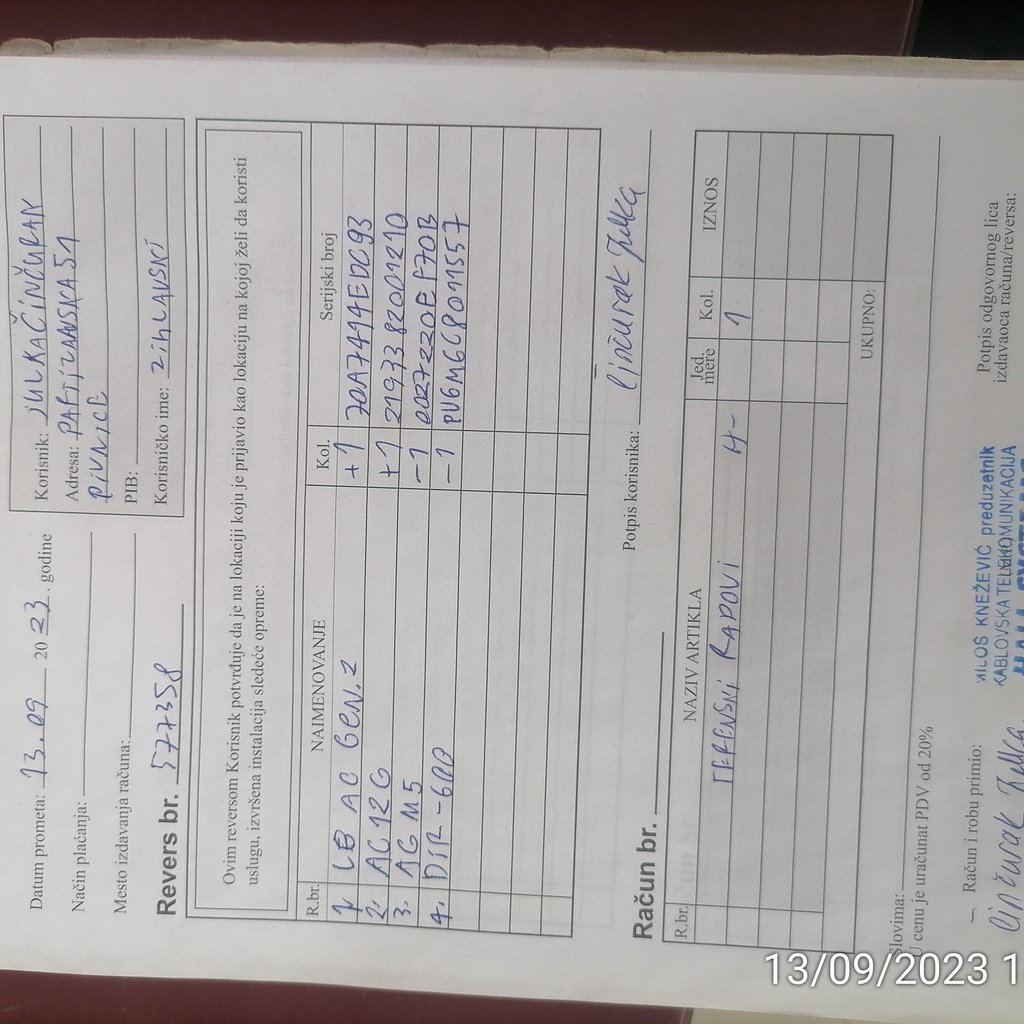 Datum prometa: 13.09 2023. godine
Način plaćanja:
Mesto izdavanja računa:
Revers br. 577358
Korisnik: JULKA ČINČURAK
Adresa: PARTIZANSKA 51
PIVNICE
PIB:
Korisničko ime: zihlavski
Ovim reversom Korisnik potvrđuje da je na lokaciji koju je prijavio kao lokaciju na kojoj želi da koristi
uslugu, izvršena instalacija sledeće opreme:
R.br. NAIMENOVANJE Kol. Serijski broj
1. LB AC GEN.2 +1 70A7414EDC93
2. AC12G +1 2193382001210
3. AG M5 -1 0027220EF70B
4. DIR-600 -1 PV6M6C8011557
Potpis korisnika: Činčurak Julka
Račun br.
R.br. NAZIV ARTIKLA Jed. mere Kol. IZNOS
TERENSKI RADOVI H- 1
UKUPNO:
Slovima:
U cenu je uračunat PDV od 20%
Račun i robu primio:
Činčurak Julka
MILOŠ KNEŽEVIĆ preduzetnik
KABLOVSKA TELEKOMUNIKACIJA
Potpis odgovornog lica
izdavaoca računa/reversa:
13/09/2023 1